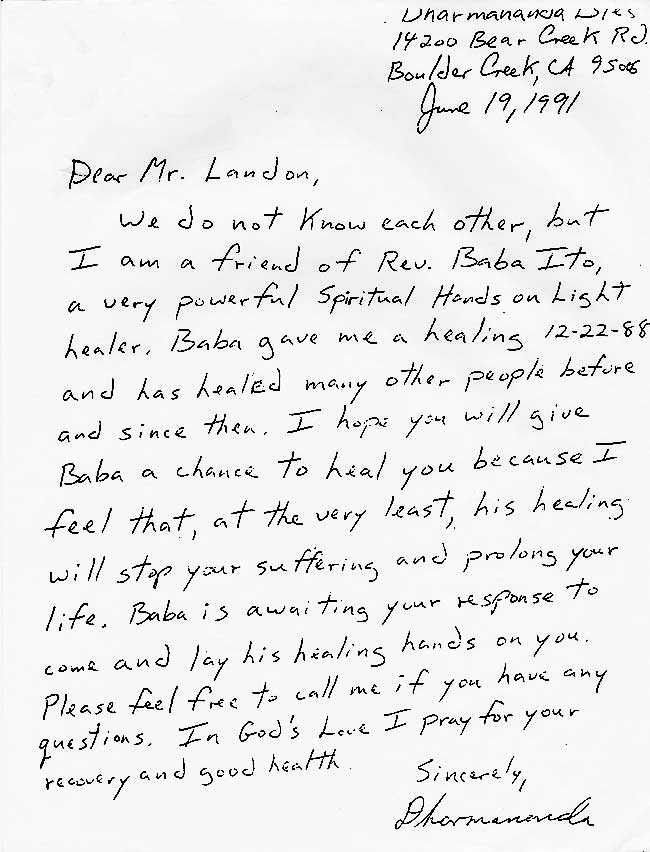 Dharmananda Dies
14200 Bear Creek Rd.
Boulder Creek, CA 95006
June 19, 1991
Dear Mr. Landon,
We do not know each other, but
I am a friend of Rev. Baba Ito,
a very powerful Spiritual Hands on Light
healer. Baba gave me a healing 12-22-88
and has healed many other people before
and since then. I hope you will give
Baba a chance to heal you because I
feel that, at the very least, his healing
will stop your suffering and prolong your
life. Baba is awaiting your response to
come and lay his healing hands on you.
Please feel free to call me if you have any
questions. In God's Love I pray for your
recovery and good health.
Sincerely,
Dharmananda